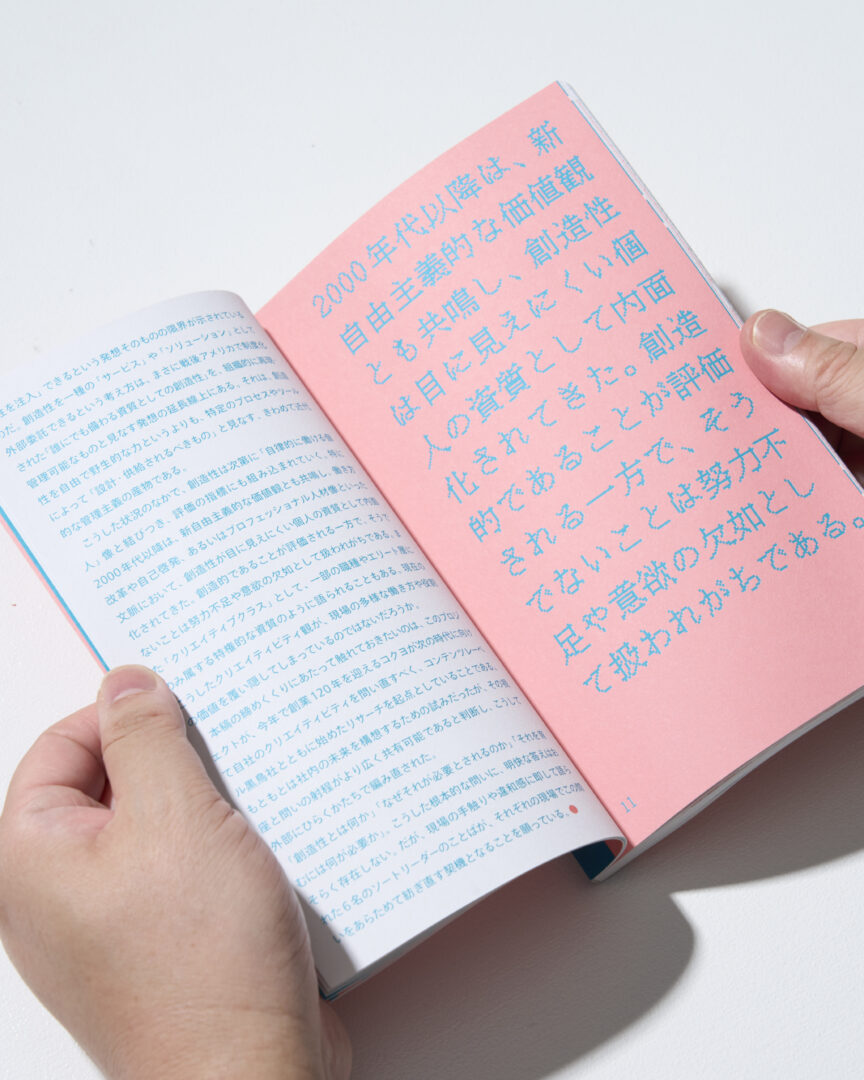 性を注入」できるという発想そのものの限界が示されている
のだ。創造性を一種の「サービス」や「ソリューション」として
外部委託できるという考え方は、まさに戦後アメリカで制度化
された「誰にでも備わる資質としての創造性」を、組織的に再現・
管理可能なものと見なす発想の延長線上にある。それは、創造
性を自由で野生的な力というよりも、特定のプロセスやツール
によって「設計・供給されるべきもの」と見なす、きわめて近代
的な管理主義の産物である。
こうした状況のなかで、創造性は次第に「自律的に働ける個
人」像と結びつき、評価の指標にも組み込まれていく。特に
2000年代以降は、新自由主義的な価値観とも共鳴し、働き方
改革や自己啓発、あるいはプロフェッショナル人材像といった
文脈において、創造性が目に見えにくい個人の資質として内面
化されてきた。創造的であることが評価される一方で、そうで
ないことは努力不足や意欲の欠如として扱われがちである。ま
た「クリエイティブクラス」として、一部の職種やエリート層に
のみ属する特権的な資質のように語られることもある。現在の
こうしたクリエイティビティ観が、現場の多様な働き方や役割
の価値を覆い隠してしまっているのではないだろうか。
本稿の締めくくりにあたって触れておきたいのは、このプロジ
ェクトが、今年で創業120年を迎えるコクヨが次の時代に向け
て自社のクリエイティビティを問い直すべく、コンテンツレーベ
ル黒鳥社とともに始めたリサーチを起点としていることである。
もともとは社内の未来を構想するための試みだったが、その視
座と問いの射程がより広く共有可能であると判断し、こうして
外部にひらくかたちで編み直された。
「創造性とは何か」「なぜそれが必要とされるのか」「それを育
むには何が必要か」。こうした根本的な問いに、明快な答えはお
そらく存在しない。だが、現場の手触りや違和感に即して語ら
れた6名のソートリーダーのことばが、それぞれの現場でこの問
いをあらためて紡ぎ直す契機となることを願っている。
2000年代以降は、新
自由主義的な価値観
とも共鳴し、創造性
は目に見えにくい個
人の資質として内面
化されてきた。創造
的であることが評価
される一方で、そう
でないことは努力不
足や意欲の欠如とし
て扱われがちである。
11